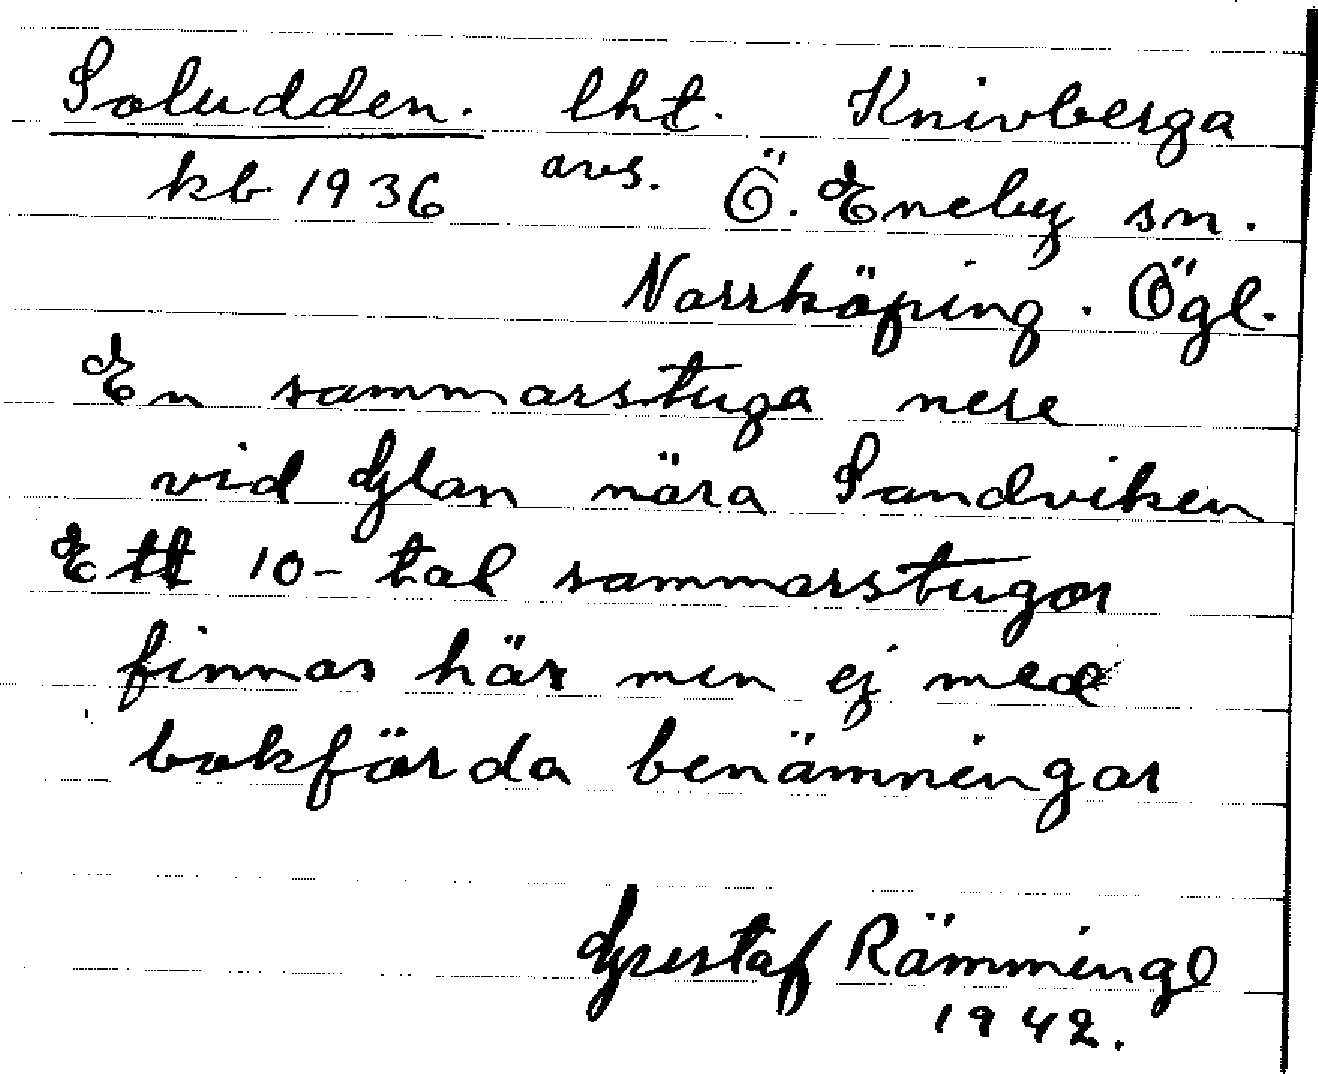 Soludden. lht. Knivberga
kb 1936 avs. Ö. Eneby sn.
Norrköping. Ögl.
En sommarstuga nere
vid Glan nära Sandviken
Ett 10-tal sommarstugor
finnas här men ej med
bokförda benämningar
Gustaf Rämmingl
1942.